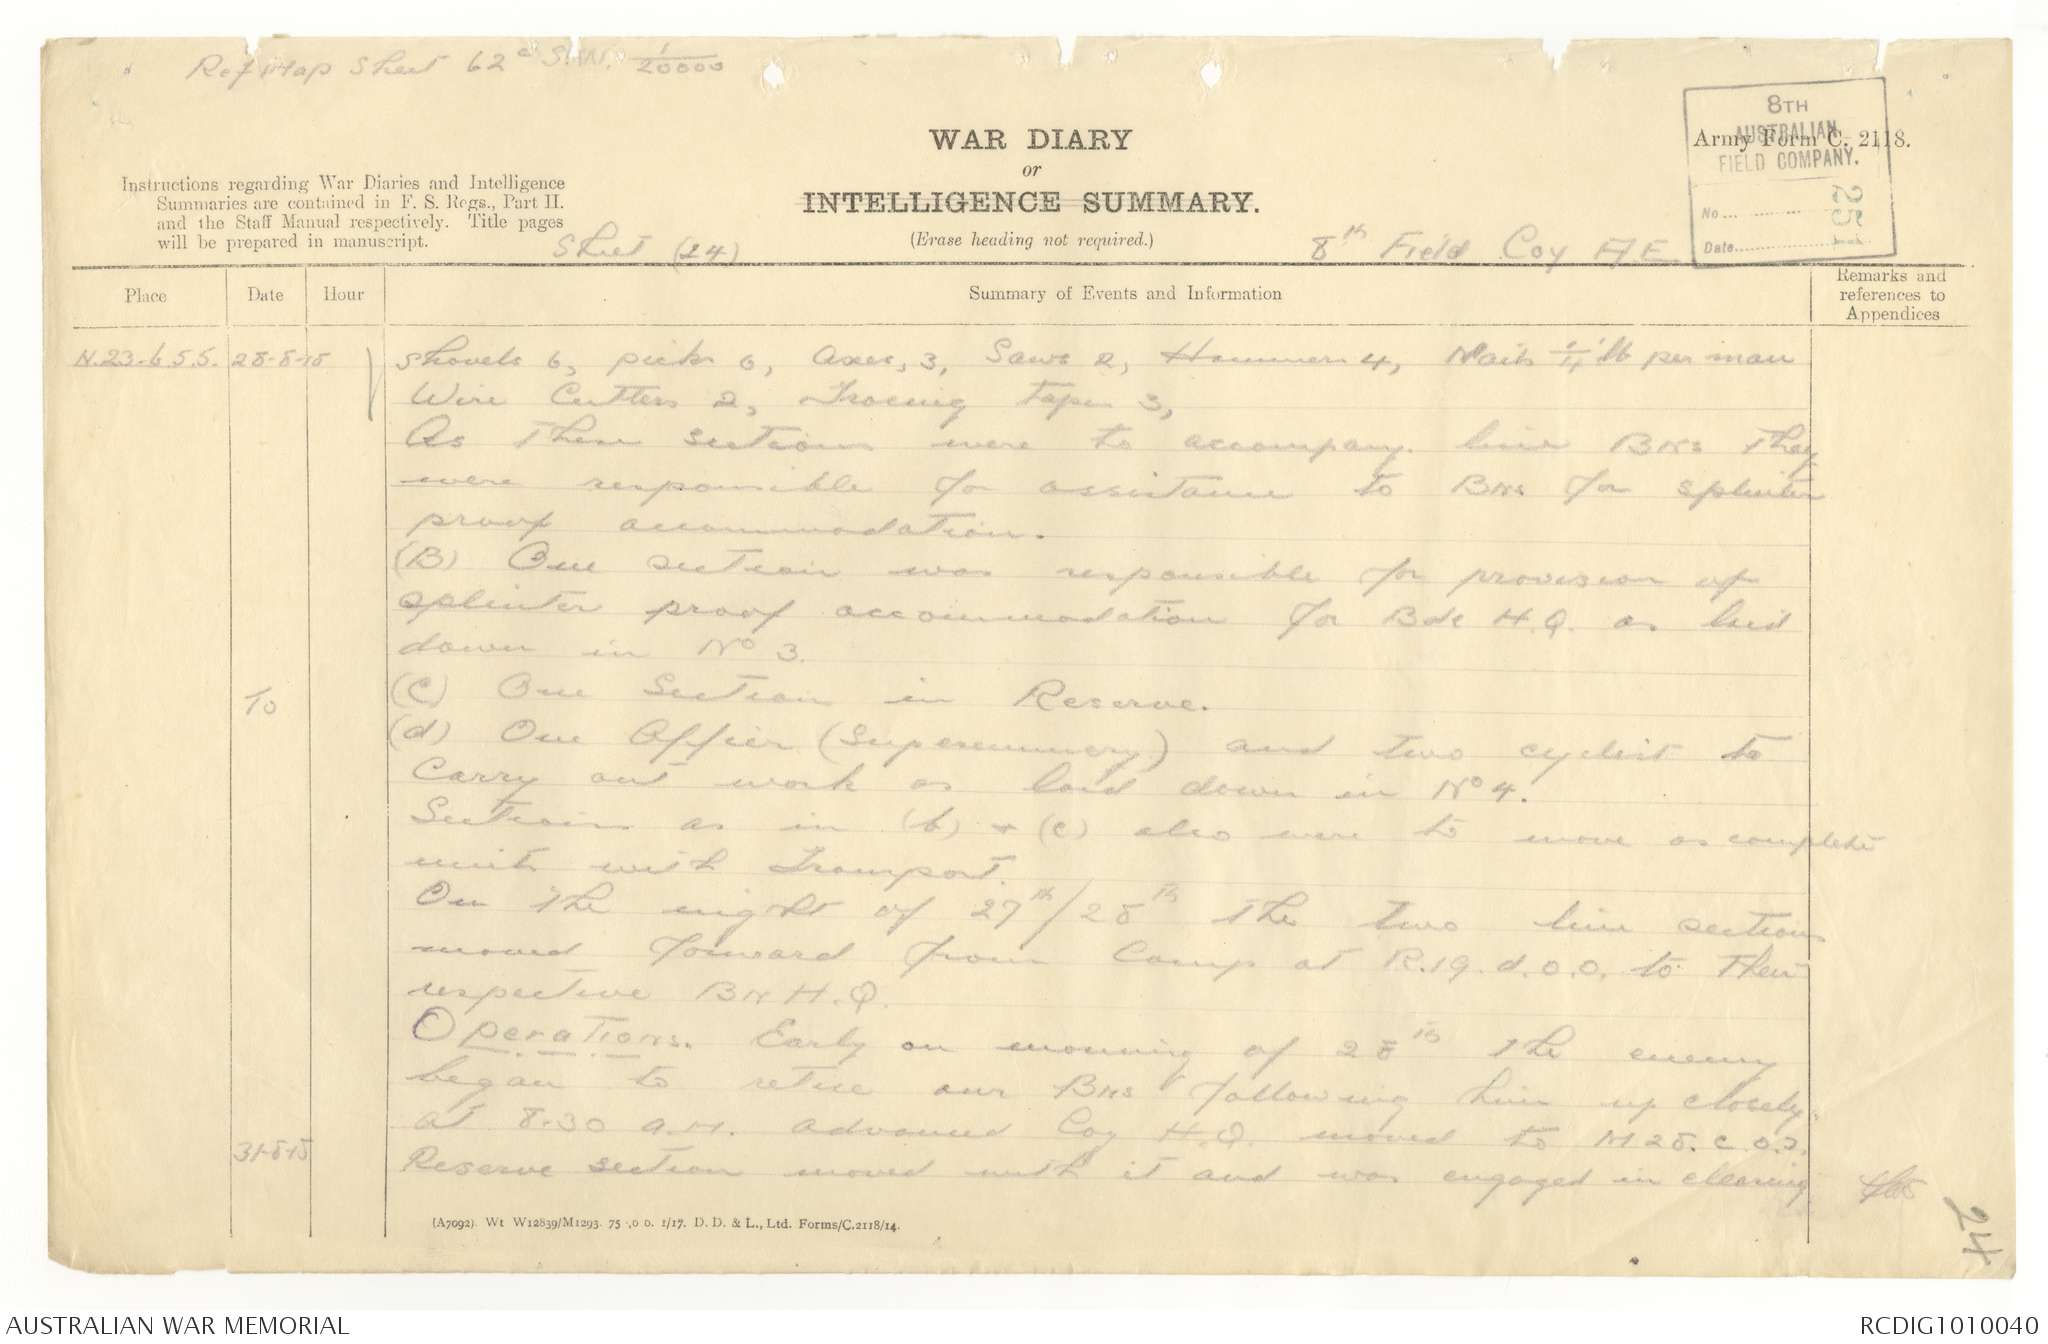 Ref Map Sheet 62d S.W. 1/20000
WAR DIARY
or
INTELLIGENCE SUMMARY.
(Erase heading not required.)
Army Form C. 2118.
8TH
AUSTRALIAN
FIELD COMPANY.
No............
Date............
251
Instructions regarding War Diaries and Intelligence
Summaries are contained in F. S. Regs., Part II.
and the Staff Manual respectively. Title pages
will be prepared in manuscript.
Sheet (24)
8th Field Coy A.E.
Place
Date
Hour
Summary of Events and Information
Remarks and
references to
Appendices
N.23.b.5.5. 28-8-18
Shovels 6, picks 6, Axes, 3, Saws 2, Hammers 4, Nails 1/4 lb per man
Wire Cutters 2, Tracing tapes 3,
As these sections were to accompany line Bns they
were responsible for assistance to Bns for splinter
proof accommodation.
(B) One section was responsible for provision of
splinter proof accommodation for Bde H.Q. as laid
down in No 3.
(C) One Section in Reserve.
To
(d) One Officer (Supernumery) and two cyclist to
Carry out work as laid down in No 4.
Sections as in (b) + (c) also were to move as complete
units with Transport.
On the night of 27th/28th the two line sections
moved forward from Camp at R.19.d.0.0. to their
respective Bn H.Q.
Operations. Early on morning of 28th the enemy
began to retire our Bns following him up closely.
At 8-30 A.M. advanced Coy H.Q. moved to M28.c.0.2.
31-8-18
Reserve section moved with it and was engaged in clearing
(A7092). Wt W12839/M1293. 75 ,0 0. 1/17. D. D. & L., Ltd. Forms/C.2118/14.
24
AUSTRALIAN WAR MEMORIAL
RCDIG1010040